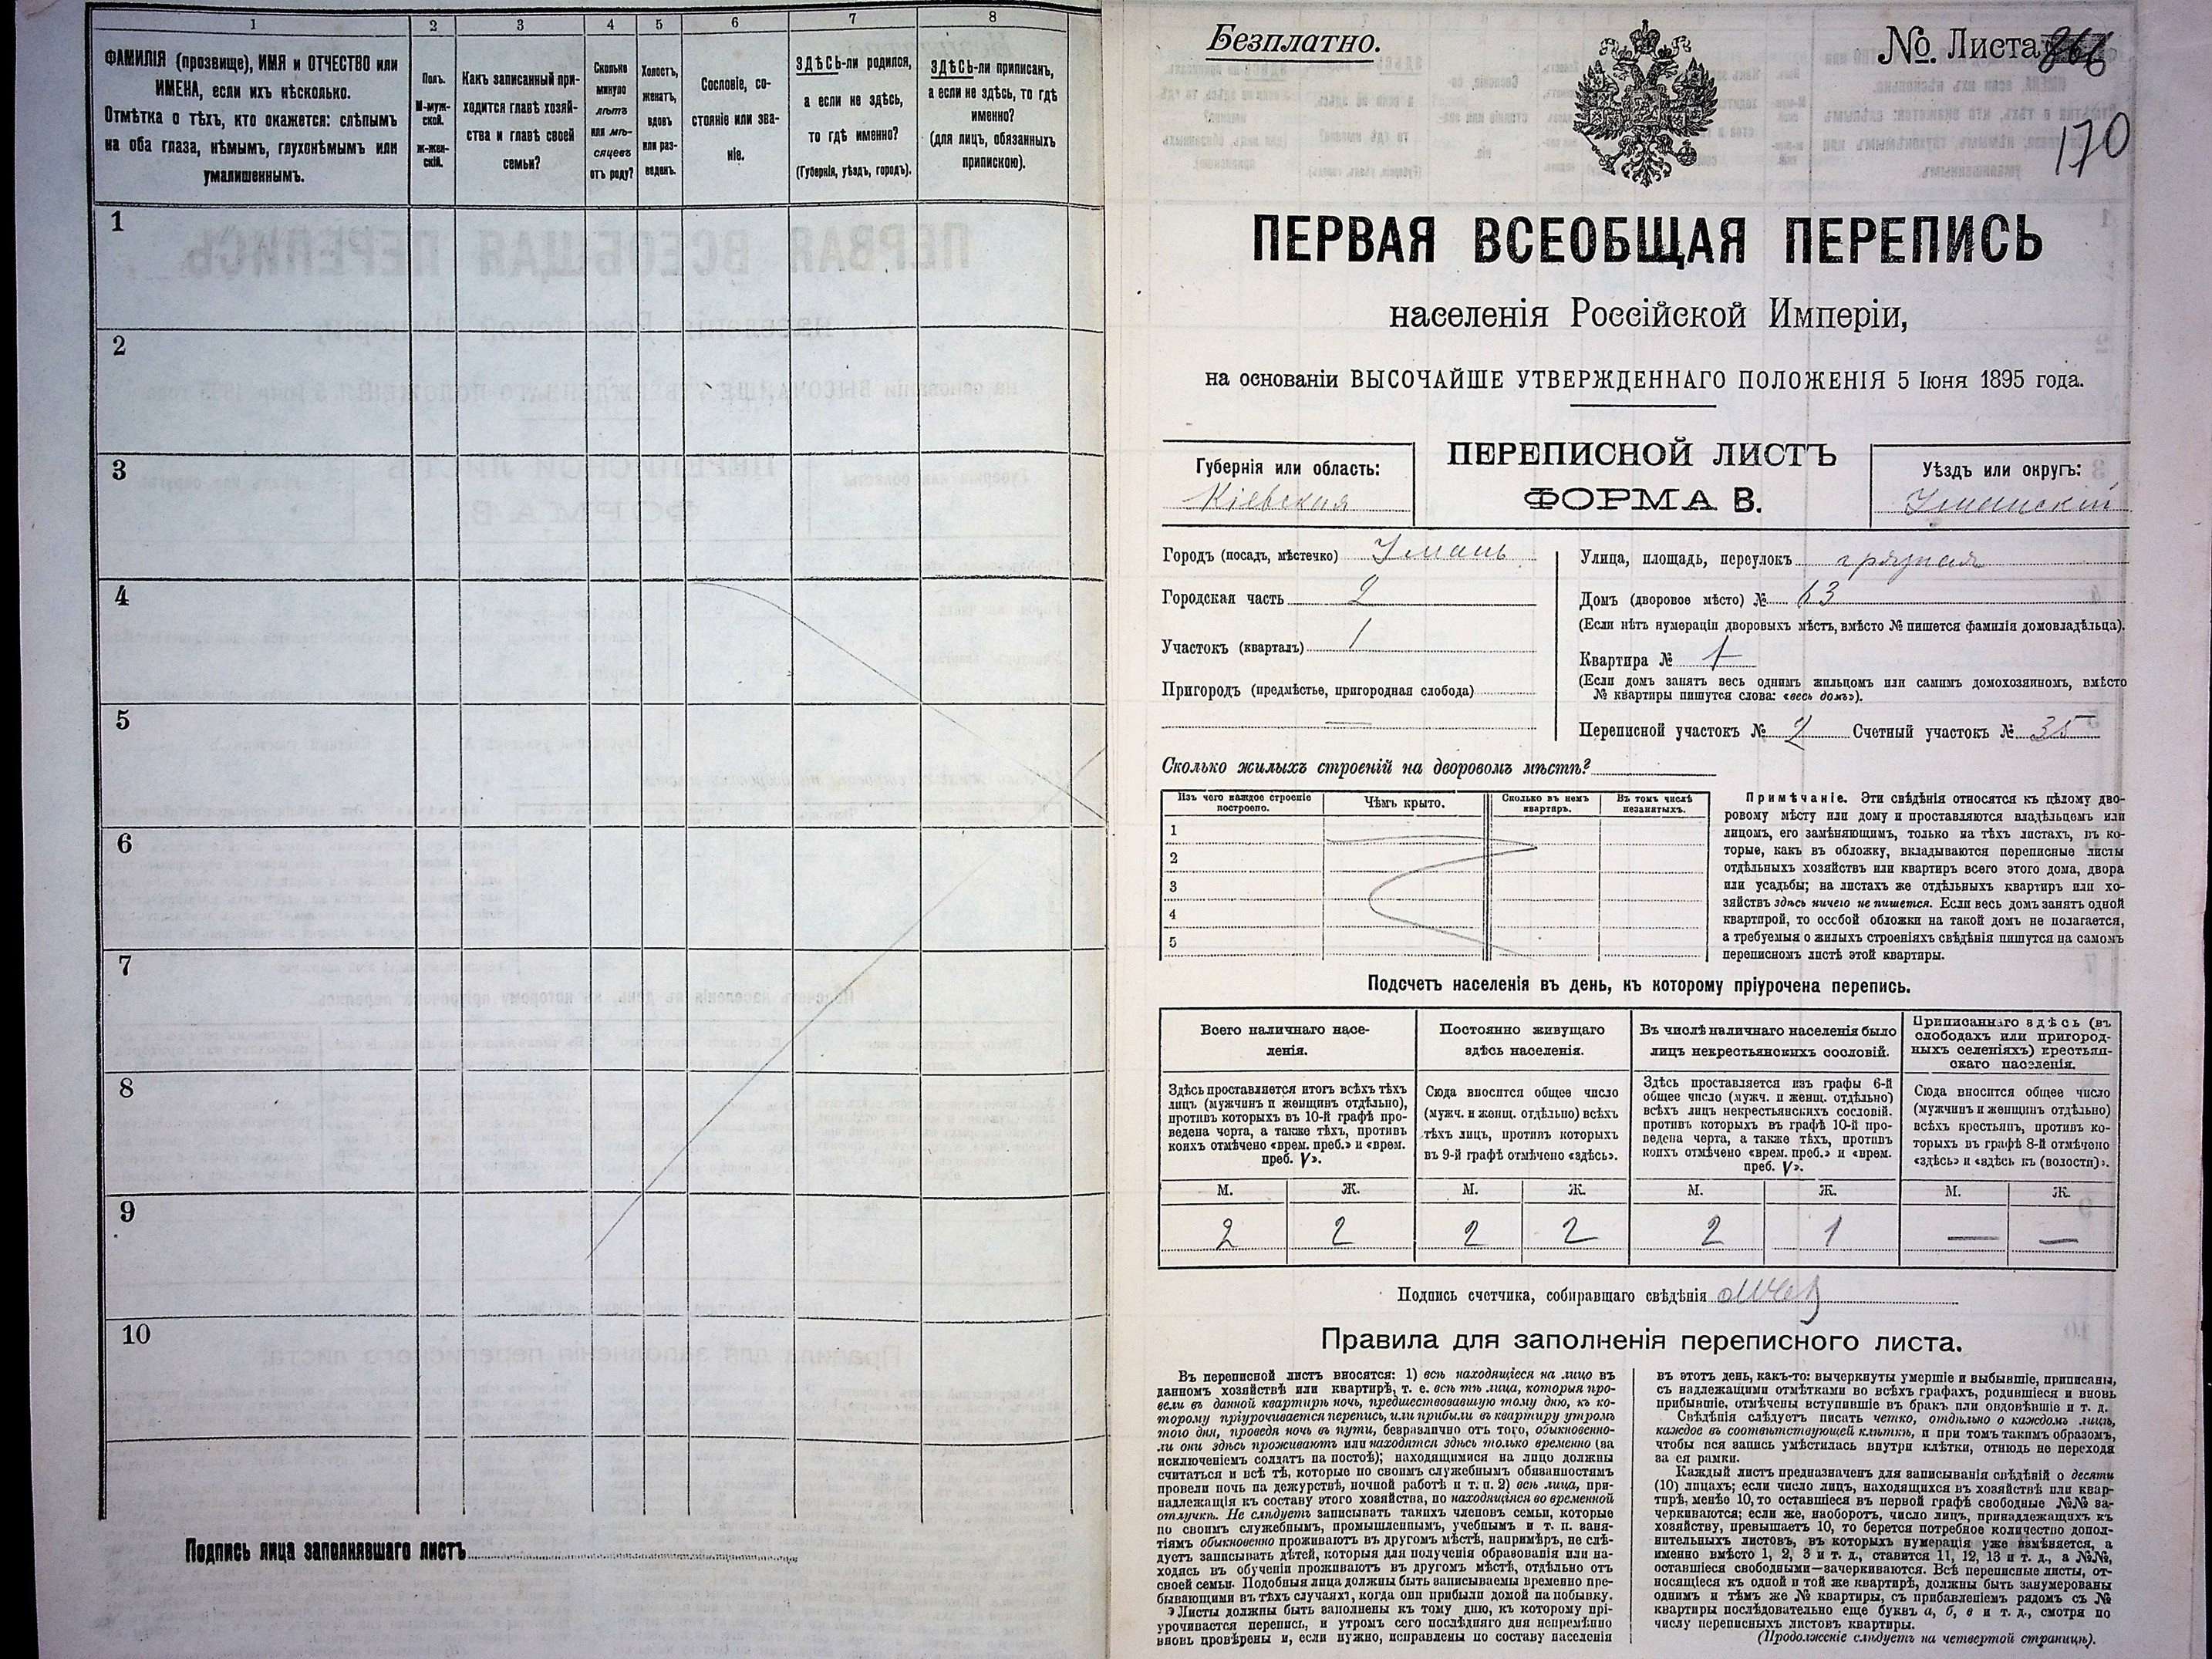 1 2 3 4 5 6 7 8
ФАМИЛІЯ (прозвище), ИМЯ и ОТЧЕСТВО или
ИМЕНА, если ихъ нѣсколько.
Отмѣтка о тѣхъ, кто окажется: слѣпымъ
на оба глаза, нѣмымъ, глухонѣмымъ или
умалишеннымъ.
Полъ.
М-муж-
ской.
ж-жен-
скій.
Какъ записанный при-
ходится главѣ хозяй-
ства и главѣ своей
семьи?
Сколько
минуло
лѣтъ
или мѣ-
сяцевъ
отъ роду?
Холостъ,
женатъ,
вдовъ
или раз-
веденъ.
Сословіе, со-
стояніе или зва-
ніе.
ЗДѢСЬ-ли родился,
а если не здѣсь,
то гдѣ именно?
(Губернія, уѣздъ, городъ).
ЗДѢСЬ-ли приписанъ,
а если не здѣсь, то гдѣ
именно?
(для лицъ, обязанныхъ
припискою).
1
2
3
4
5
6
7
8
9
10
Подпись лица заполнявшаго листъ
Безплатно.
№ Листа 866
170
ПЕРВАЯ ВСЕОБЩАЯ ПЕРЕПИСЬ
населенія Россійской Имперіи,
на основаніи ВЫСОЧАЙШЕ УТВЕРЖДЕННАГО ПОЛОЖЕНІЯ 5 Іюня 1895 года.
Губернія или область:
Кіевская
ПЕРЕПИСНОЙ ЛИСТЪ
ФОРМА В.
Уѣздъ или округъ:
Уманскій
Городъ (посадъ, мѣстечко) Умань
Городская часть 2
Участокъ (кварталъ) 1
Пригородъ (предмѣстье, пригородная слобода)
—
Улица, площадь, переулокъ грязная
Домъ (дворовое мѣсто) № 63
(Если нѣтъ нумераціи дворовыхъ мѣстъ, вмѣсто № пишется фамилія домовладѣльца).
Квартира № 1
(Если домъ занятъ весь однимъ жильцомъ или самимъ домохозяиномъ, вмѣсто
№ квартиры пишутся слова: «весь домъ»).
Переписной участокъ № 2 Счетный участокъ № 35
Сколько жилыхъ строеній на дворовомъ мѣстѣ?
Изъ чего каждое строеніе
построено.
Чѣмъ крыто.
Сколько въ немъ
квартиръ.
Въ томъ числѣ
незанятыхъ.
1
2
3
4
5
Примѣчаніе. Эти свѣдѣнія относятся къ цѣлому дво-
ровому мѣсту или дому и проставляются владѣльцемъ или
лицомъ, его замѣняющимъ, только на тѣхъ листахъ, въ ко-
торые, какъ въ обложку, вкладываются переписные листы
отдѣльныхъ хозяйствъ или квартиръ всего этого дома, двора
или усадьбы; на листахъ же отдѣльныхъ квартиръ или хо-
зяйствъ здѣсь ничего не пишется. Если весь домъ занятъ одной
квартирой, то особой обложки на такой домъ не полагается,
а требуемыя о жилыхъ строеніяхъ свѣдѣнія пишутся на самомъ
переписномъ листѣ этой квартиры.
Подсчетъ населенія въ день, къ которому пріурочена перепись.
Всего наличнаго насе-
ленія.
Здѣсь проставляется итогъ всѣхъ тѣхъ
лицъ (мужчинъ и женщинъ отдѣльно),
противъ которыхъ въ 10-й графѣ про-
ведена черта, а также тѣхъ, противъ
коихъ отмѣчено «врем. преб.» и «врем.
преб. V».
Постоянно живущаго
здѣсь населенія.
Сюда вносится общее число
(мужч. и женщ. отдѣльно) всѣхъ
тѣхъ лицъ, противъ которыхъ
въ 9-й графѣ отмѣчено «здѣсь».
Въ числѣ наличнаго населенія было
лицъ некрестьянскихъ сословій.
Здѣсь проставляется изъ графы 6-й
общее число (мужч. и женщ. отдѣльно)
всѣхъ лицъ некрестьянскихъ сословій.
противъ которыхъ въ графѣ 10-й про-
ведена черта, а также тѣхъ, противъ
коихъ отмѣчено «врем. преб.» и «врем.
преб. V».
Приписаннаго здѣсь (въ
слободахъ или пригород-
ныхъ селеніяхъ) крестьян-
скаго населенія.
Сюда вносится общее число
(мужчинъ и женщинъ отдѣльно)
всѣхъ крестьянъ, противъ ко-
торыхъ въ графѣ 8-й отмѣчено
«здѣсь» и «здѣсь къ (волости)».
М. Ж. М. Ж. М. Ж. М. Ж.
2 2 2 2 2 1 — —
Подпись счетчика, собиравшаго свѣдѣнія
Правила для заполненія переписного листа.
Въ переписной листъ вносятся: 1) всѣ находящіеся на лицо въ
данномъ хозяйствѣ или квартирѣ, т. е. всѣ тѣ лица, которыя про-
вели въ данной квартирѣ ночь, предшествовавшую тому дню, къ ко-
торому пріурочивается перепись, или прибыли въ квартиру утромъ
того дня, проведя ночь въ пути, безразлично отъ того, обыкновенно-
ли они здѣсь проживаютъ или находятся здѣсь только временно (за
исключеніемъ солдатъ на постоѣ); находящимися на лицо должны
считаться и всѣ тѣ, которые по своимъ служебнымъ обязанностямъ
провели ночь на дежурствѣ, ночной работѣ и т. п. 2) всѣ лица, при-
надлежащія къ составу этого хозяйства, но находящіяся во временной
отлучкѣ. Не слѣдуетъ записывать такихъ членовъ семьи, которые
по своимъ служебнымъ, промышленнымъ, учебнымъ и т. п. заня-
тіямъ обыкновенно проживаютъ въ другомъ мѣстѣ, напримѣръ, не слѣ-
дуетъ записывать дѣтей, которыя для полученія образованія или на-
ходясь въ обученіи проживаютъ въ другомъ мѣстѣ, отдѣльно отъ
своей семьи. Подобныя лица должны быть записываемы временно пре-
бывающими въ тѣхъ случаяхъ, когда они прибыли домой на побывку.
Листы должны быть заполнены къ тому дню, къ которому прі-
урочивается перепись, и утромъ сего послѣдняго дня непремѣнно
вновь провѣрены и, если нужно, исправлены по составу населенія
въ этотъ день, какъ-то: вычеркнуты умершіе и выбывшіе, приписаны,
съ надлежащими отмѣтками во всѣхъ графахъ, родившіеся и вновь
прибывшіе, отмѣчены вступившіе въ бракъ или овдовѣвшіе и т. д.
Свѣдѣнія слѣдуетъ писать четко, отдѣльно о каждомъ лицѣ,
каждое въ соотвѣтствующей клѣткѣ, и при томъ такимъ образомъ,
чтобы вся запись умѣстилась внутри клѣтки, отнюдь не переходя
за ея рамки.
Каждый листъ предназначенъ для записыванія свѣдѣній о десяти
(10) лицахъ; если число лицъ, находящихся въ хозяйствѣ или квар-
тирѣ, менѣе 10, то оставшіеся въ первой графѣ свободные №№ за-
черкиваются; если же, наоборотъ, число лицъ, принадлежащихъ къ
хозяйству, превышаетъ 10, то берется потребное количество допол-
нительныхъ листовъ, въ которыхъ нумерація уже измѣняется, а
именно вмѣсто 1, 2, 3 и т. д., ставится 11, 12, 13 и т. д., а №№,
оставшіеся свободными—зачеркиваются. Всѣ переписные листы, от-
носящіеся къ одной и той же квартирѣ, должны быть занумерованы
однимъ и тѣмъ же № квартиры, съ прибавленіемъ рядомъ съ №
квартиры послѣдовательно еще буквъ а, б, в и т. д., смотря по
числу переписныхъ листовъ квартиры.
(Продолженіе слѣдуетъ на четвертой страницѣ).